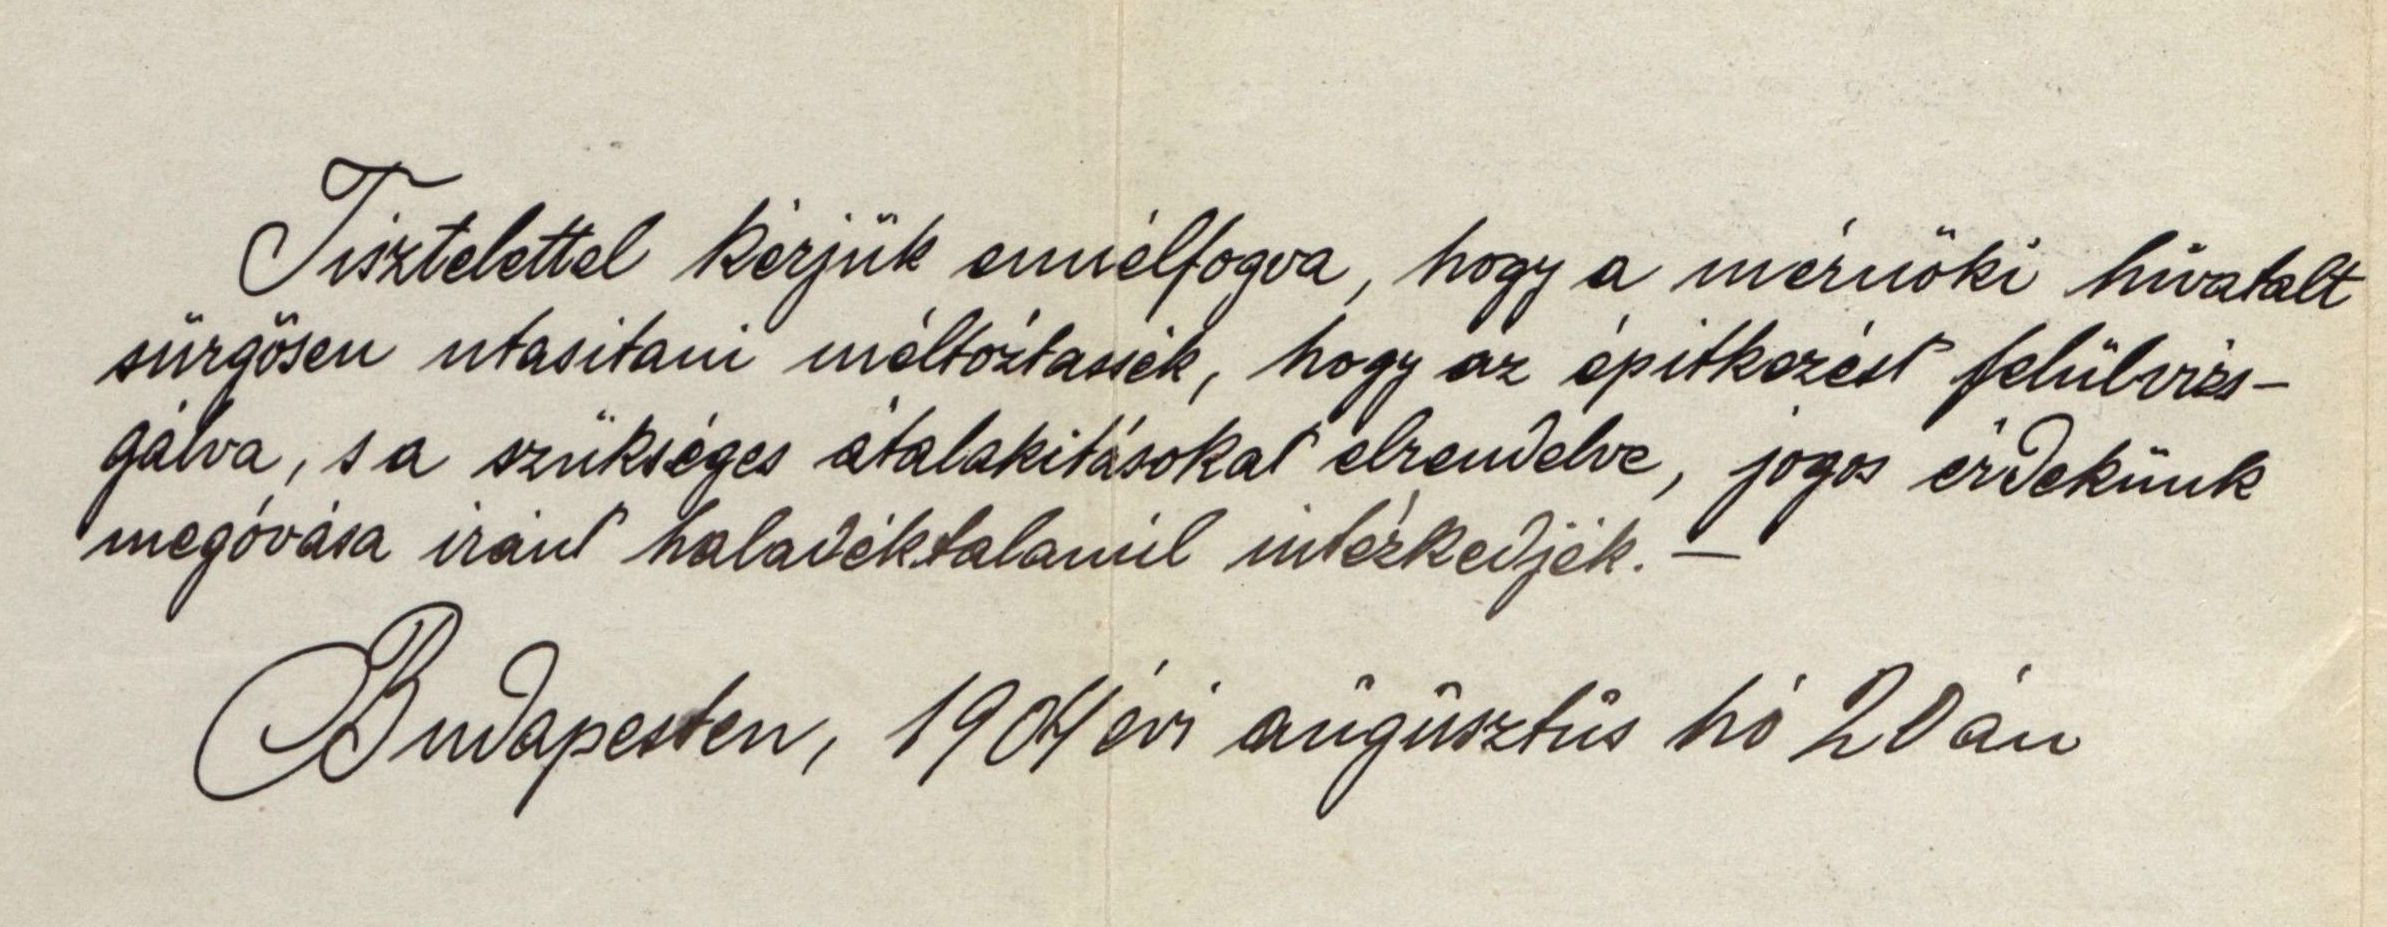 Tisztelettel kérjük ennélfogva, hogy a mérnöki hivatalt
sürgősen utasitani méltóztassék, hogy az épitkezést felülvizs-
gálva, s a szükséges átalakitásokat elrendelve, jogos érdekünk
megóvása iránt haladéktalanúl intézkedjék. —
Budapesten, 1904 évi augusztus hó 20 án